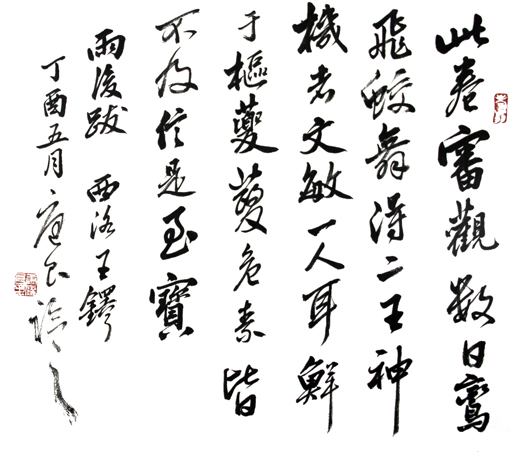 此卷審觀數日鸞
飛蛟舞得二王神
機者文敏一人耳鮮
于樞蘷蘷危素皆
不及信是至寶
雨後跋 西洛王鐸
丁酉五月 臨之